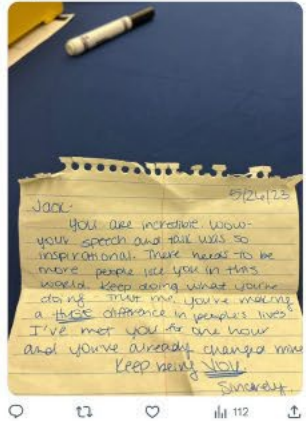 5/26/23
Jack.
You are incredible. wow-
your speech and talk was so
inspirational. There needs to be
more people like you in this
world. Keep doing what you're
doing. Trust me, you're making
a HUGE difference in people's lives
I've met you for one hour
and you've already changed mine
Keep being YOU.
Sincerely,
112